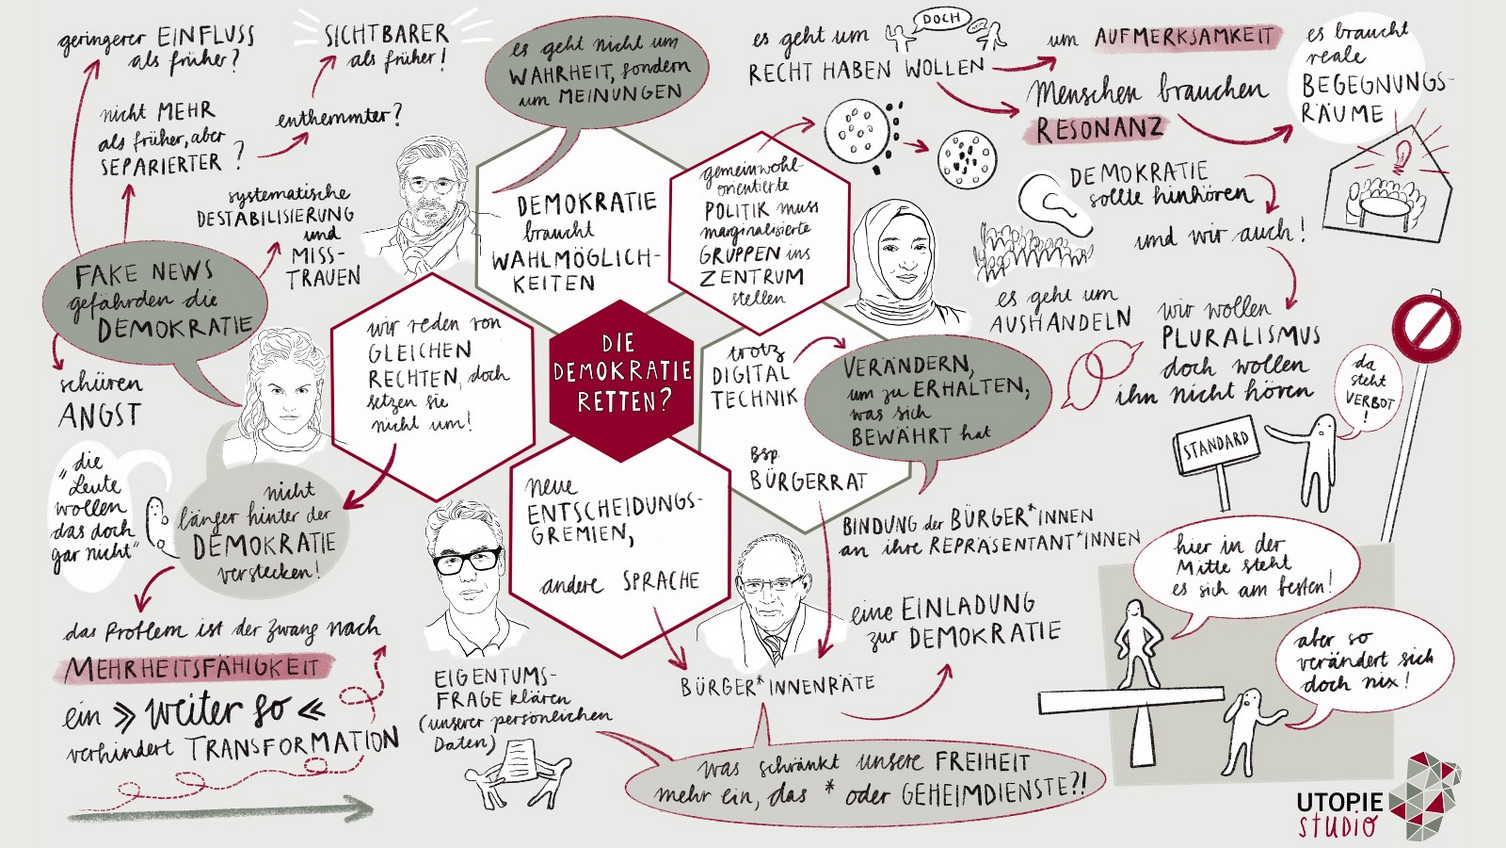 geringerer EINFLUSS
als früher?
SICHTBARER
als früher!
nicht MEHR
als früher, aber
SEPARIERTER ?
enthemmter?
systematische
DESTABILISIERUNG
und
MISS-
TRAUEN
FAKE NEWS
gefährden die
DEMOKRATIE
schüren
ANGST
es geht nicht um
WAHRHEIT, sondern
um MEINUNGEN
DEMOKRATIE
braucht
WAHLMÖGLICH-
KEITEN
gemeinwohl-
orientierte
POLITIK muss
marginalisierte
GRUPPEN ins
ZENTRUM
stellen
es geht um
RECHT HABEN WOLLEN
DOCH
um AUFMERKSAMKEIT
Menschen brauchen
RESONANZ
es braucht
reale
BEGEGNUNGS-
RÄUME
DEMOKRATIE
sollte hinhören
und wir auch!
es geht um
AUSHANDELN
wir wollen
PLURALISMUS
doch wollen
ihn nicht hören
da
steht
VERBOT
!
STANDARD
DIE
DEMOKRATIE
RETTEN?
wir reden von
GLEICHEN
RECHTEN, doch
setzen sie
nicht um!
trotz
DIGITAL
TECHNIK
Bsp.
BÜRGERRAT
VERÄNDERN,
um zu ERHALTEN,
was sich
BEWÄHRT hat
BINDUNG der BÜRGER*INNEN
an ihre REPRÄSENTANT*INNEN
"die
Leute
wollen
das doch
gar nicht"
nicht
länger hinter der
DEMOKRATIE
verstecken!
das Problem ist der Zwang nach
MEHRHEITSFÄHIGKEIT
ein >> weiter so <<
verhindert TRANSFORMATION
neue
ENTSCHEIDUNGS-
GREMIEN,
andere SPRACHE
EIGENTUMS-
FRAGE klären
(unserer persönlichen
Daten)
BÜRGER*INNENRÄTE
eine EINLADUNG
zur DEMOKRATIE
was schränkt unsere FREIHEIT
mehr ein, das * oder GEHEIMDIENSTE?!
hier in der
Mitte steht
es sich am besten!
aber so
verändert sich
doch nix!
UTOPIE
STUDIO